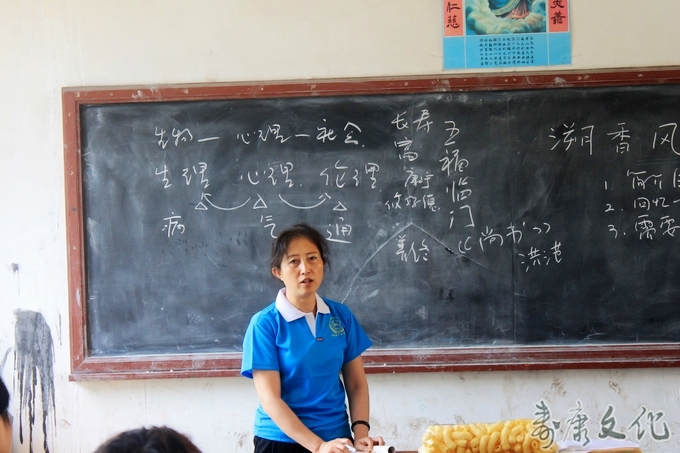 仁慈
善
生物—心理—社会
生理 心理 伦理
病 气 通
长寿
康宁
攸好德
善终
五福临门
《尚书》
洪范
香风
1. 简介
2. 回忆一
3. 需要
寿康文化